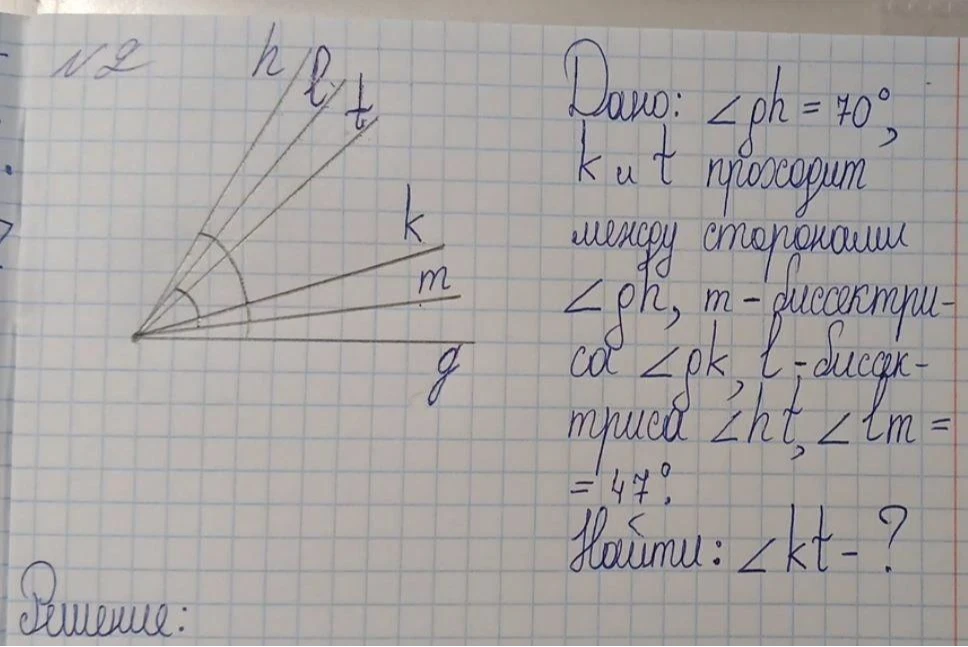 №2
h
l
t
k
m
g
Дано: ∠gh = 70°,
k и t проходит
между сторонами
∠gh, m - биссектри-
са ∠gk, l - бисек-
триса ∠ht, ∠lm =
= 47°.
Найти: ∠kt - ?
Решение: